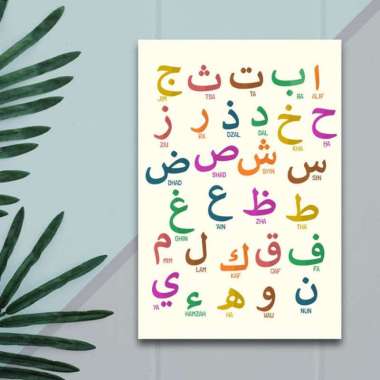 ا ب ت ث ج
ALIF BA TA TSA JIM
ح خ د ذ ر ز
HA KHA DAL DZAL RA ZAI
س ش ص ض
SIN SYIN SHAD DHAD
ط ظ ع غ
THA ZHA 'AIN GHIN
ف ق ك ل م
FA QAF KAF LAM MIM
ن و ه ء ي
NUN WAU HA HAMZAH YA